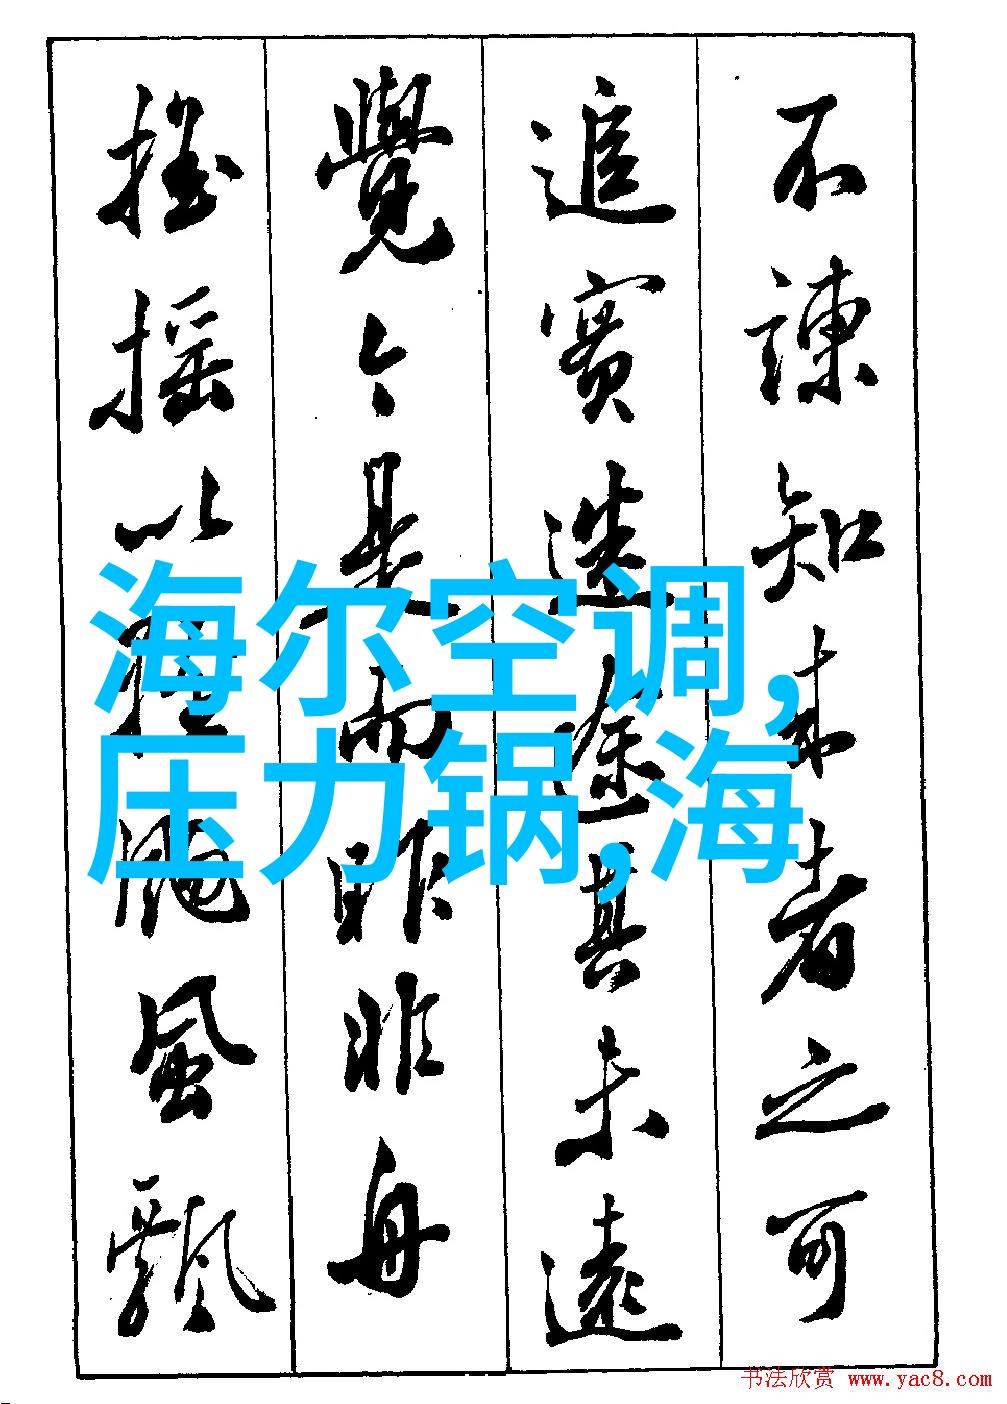 不諫知来者之可
追實迷途其未遠
覺今是而昨非舟
摇摇以輕颺風飄
海尔空调,
压力锅,海
书法欣赏 www.yac8.com